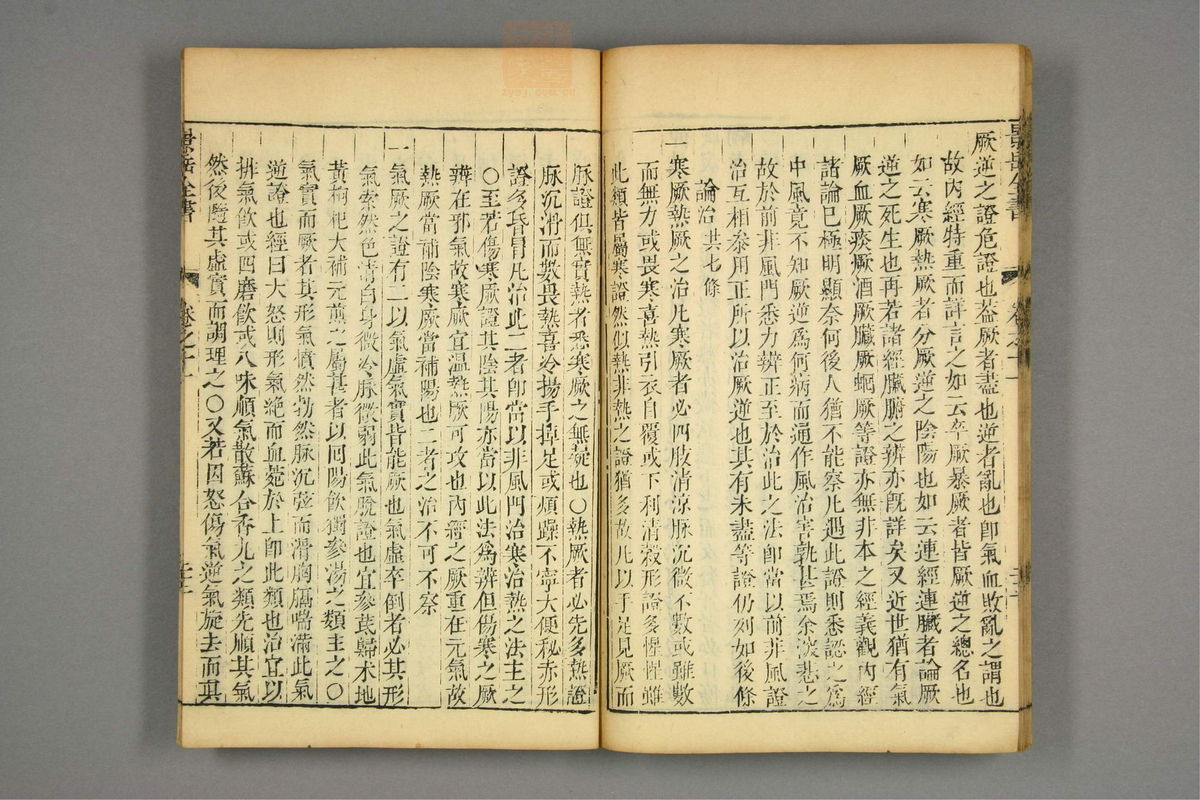 景岳全書
卷之十一
厥逆之證危證也葢厥者盡也逆者亂也卽氣血敗亂之謂也
故內經特重而詳言之如云卒厥暴厥者皆厥逆之總名也
如云寒厥熱厥者分厥逆之陰陽也如云連經連臟者論厥
逆之死生也再若諸經臟腑之辨亦旣詳矣又近世猶有氣
厥血厥痰厥酒厥臟厥蚘厥等證亦無非本之經義觀內經
諸論巳極明顯奈何後人猶不能察凢遇此證則悉認之爲
中風竟不知厥逆爲何病而通作風治害孰甚焉余深悲之
故於前非風門悉力辨正至於治此之法卽當以前非風證
治互相叅用正所以治厥逆也其有未盡等證仍列如後條
論治共七條
一寒厥熱厥之治凢寒厥者必四肢清涼脉沉微不數或雖數
而無力或畏寒喜熱引衣自覆或下利清穀形證多惺惺雖
此類皆屬寒證然似熱非熱之證猶多故凢以手足見厥而
脉證俱無實熱者悉寒厥之無疑也〇熱厥者必先多熱證
脉沉滑而數畏熱喜冷揚手掉足或煩躁不寧大便秘赤形
證多昏冒凢治此二者卽當以非風門治寒治熱之法主之
〇至若傷寒厥證其陰其陽亦當以此法爲辨但傷寒之厥
辨在邪氣故寒厥宜温熱厥可攻也內經之厥重在元氣故
熱厥當補陰寒厥當補陽也二者之治不可不察
一氣厥之證有二以氣虛氣實皆能厥也氣虛卒倒者必其形
氣索然色清白身微冷脉微弱此氣脫證也宜參芪歸术地
黃枸杞大補元煎之屬甚者以回陽飲獨參湯之類主之〇
氣實而厥者其形氣憤然勃然脉沉弦而滑胸膈喘滿此氣
逆證也經曰大怒則形氣絕而血菀於上卽此類也治宜以
排氣飲或四磨飲或八味順氣散蘇合香丸之類先順其氣
然後隨其虛實而調理之〇又若因怒傷氣逆氣旋去而真
景岳全書
卷之十一